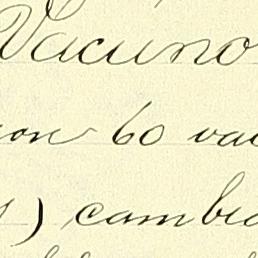 Vacuno
ion 60 vac
s) cambia